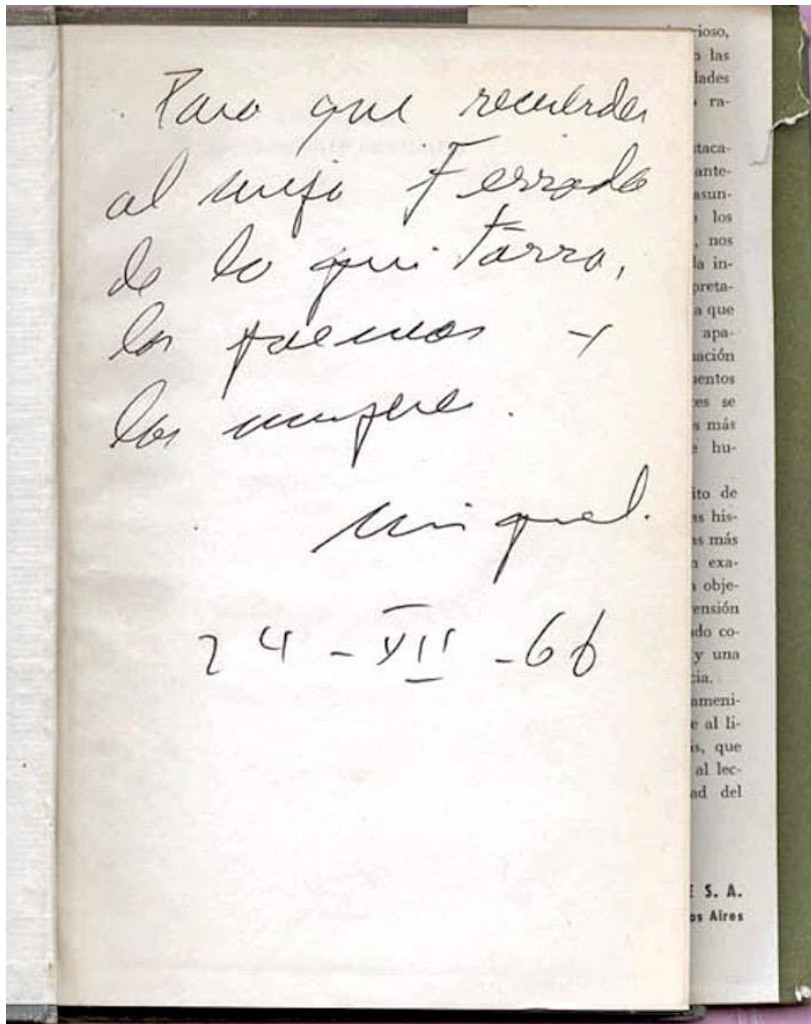 Para que recuerdes
al viejo Ferrada
de la guitarra,
los poemas y
las mujeres.
Miguel.
24-XII-66
ioso,
las
dades
ra-
staca-
ante-
asun-
los
, nos
la in-
preta-
a que
apa-
uación
uentos
es se
s más
hu-
ito de
as his-
as más
n exa-
obje-
ensión
do co-
y una
cia.
ameni-
e al li-
s, que
al lec-
ad del
E S. A.
os Aires